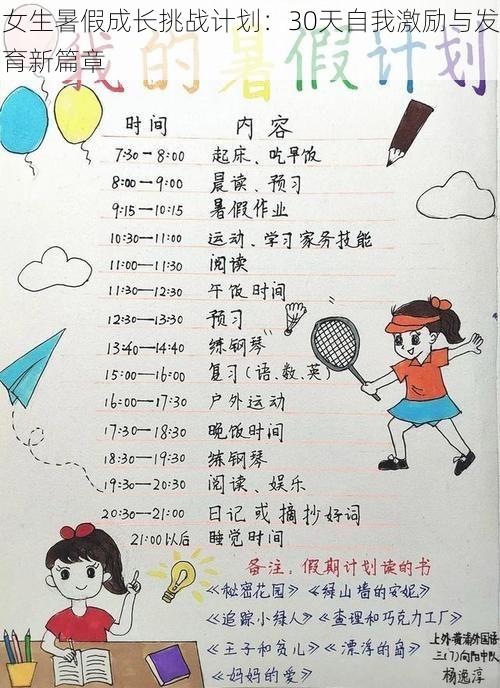 女生暑假成长挑战计划：30天自我激励与发
育新篇章
我的暑假计划
时间 内容
7:30—8:00 起床、吃早饭
8:00—9:00 晨读、预习
9:15—10:15 暑假作业
10:30—11:00 运动、学习家务技能
11:00—11:30 阅读
11:30—12:30 午饭时间
12:30—13:30 预习
13:40—14:40 练钢琴
15:00—16:00 复习(语、数、英)
16:00—17:30 户外运动
17:30—18:30 晚饭时间
18:30—19:30 练钢琴
19:30—20:30 阅读、娱乐
20:30—21:00 日记或摘抄好词
21:00以后 睡觉时间
备注：假期计划读的书
《秘密花园》《绿山墙的安妮》
《追踪小绿人》《查理和巧克力工厂》
《王子和贫儿》《漂浮的岛》
《妈妈的爱》
上外-黄浦外国语
三(7)向阳中队
杨逸淳